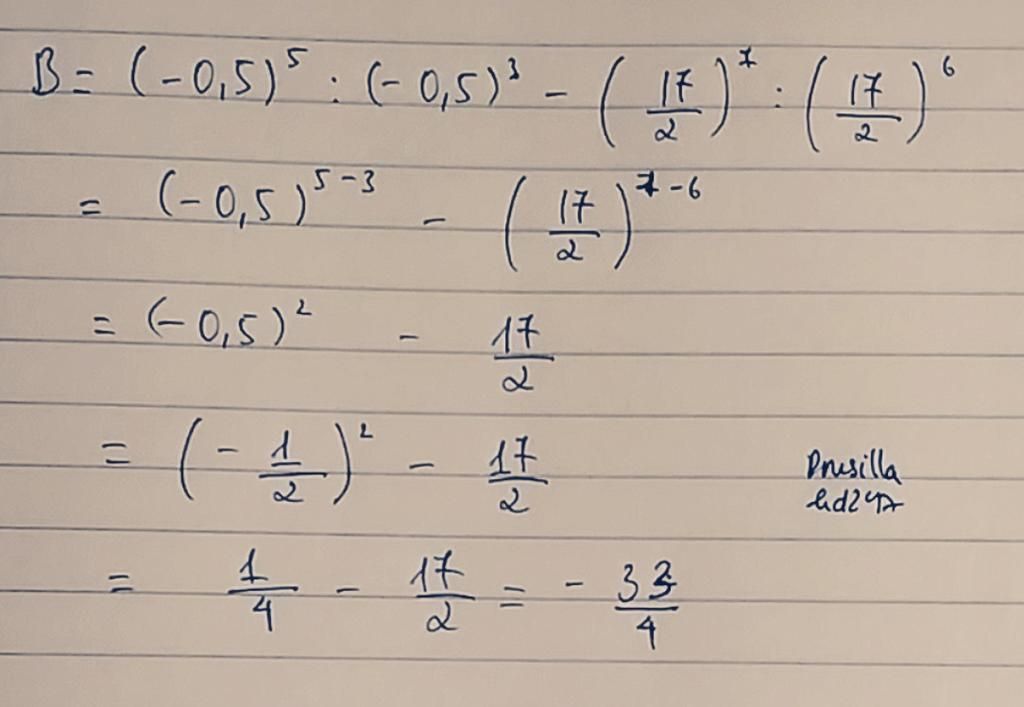 B = (-0,5)⁵ : (-0,5)³ - (17/2)⁷ : (17/2)⁶
= (-0,5)⁵⁻³ - (17/2)⁷⁻⁶
= (-0,5)² - 17/2
= (-1/2)² - 17/2
Drusilla
= 1/4 - 17/2 = - 33/4